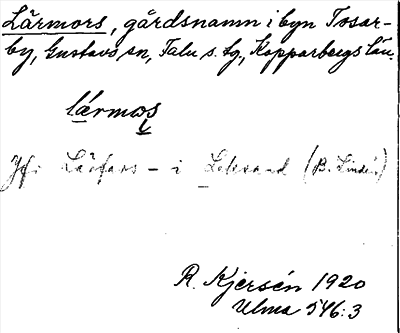 Lärmors, gårdsnamn i byn Tosar-
by, Gustavs sn, Falu s. lg, Kopparbergs län.
lärmωs
Jfr Lärfars- i Leksand (B. Lindén)
R. Kjersén 1920
Ulma 546:3